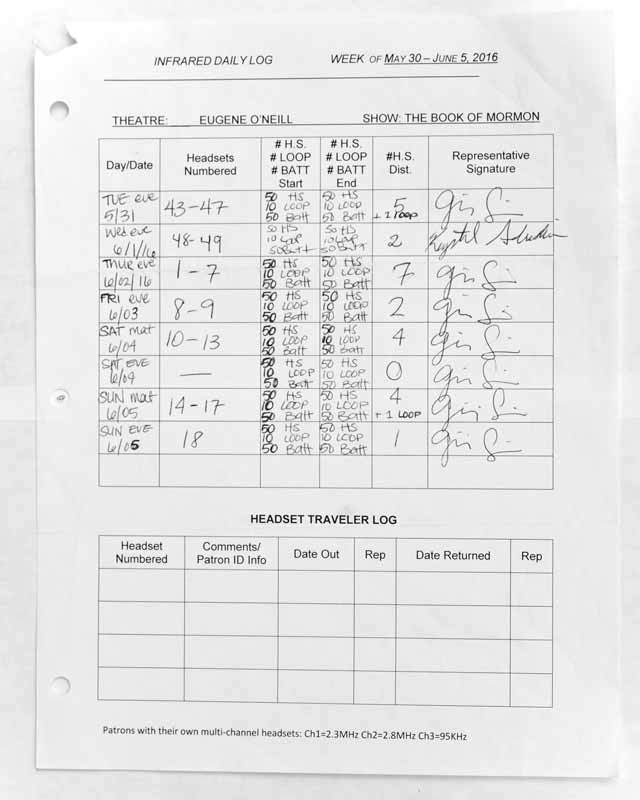 INFRARED DAILY LOG WEEK OF MAY 30 – JUNE 5, 2016
THEATRE: EUGENE O'NEILL SHOW: THE BOOK OF MORMON
Day/Date
Headsets
Numbered
# H.S.
# LOOP
# BATT
Start
# H.S.
# LOOP
# BATT
End
#H.S.
Dist.
Representative
Signature
TUE eve
5/31
43-47
50 HS
10 LOOP
50 Batt
50 HS
10 LOOP
50 Batt
5
+ 1 LOOP
Wed eve
6/1/16
48-49
50 HS
10 Loop
50 Batt
50 HS
10 Loop
50 Batt
2
Krystal
THUR eve
6/02/16
1-7
50 HS
10 LOOP
50 Batt
50 HS
10 LOOP
50 Batt
7
FRI eve
6/03
8-9
50 HS
10 LOOP
50 Batt
50 HS
10 LOOP
50 Batt
2
SAT mat
6/04
10-13
50 HS
10 LOOP
50 Batt
50 HS
10 LOOP
50 Batt
4
SAT EVE
6/04
—
50 HS
10 LOOP
50 Batt
50 HS
10 LOOP
50 Batt
0
SUN mat
6/05
14-17
50 HS
10 LOOP
50 Batt
50 HS
10 LOOP
50 Batt
4
+ 1 LOOP
SUN EVE
6/05
18
50 HS
10 LOOP
50 Batt
50 HS
10 LOOP
50 Batt
1
HEADSET TRAVELER LOG
Headset
Numbered
Comments/
Patron ID Info
Date Out
Rep
Date Returned
Rep
Patrons with their own multi-channel headsets: Ch1=2.3MHz Ch2=2.8MHz Ch3=95KHz